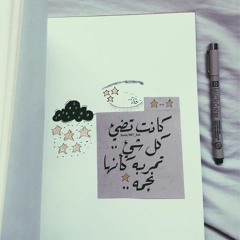 كانت تضيئ
كل شيئ ..
تمر به كأنها
نجمة